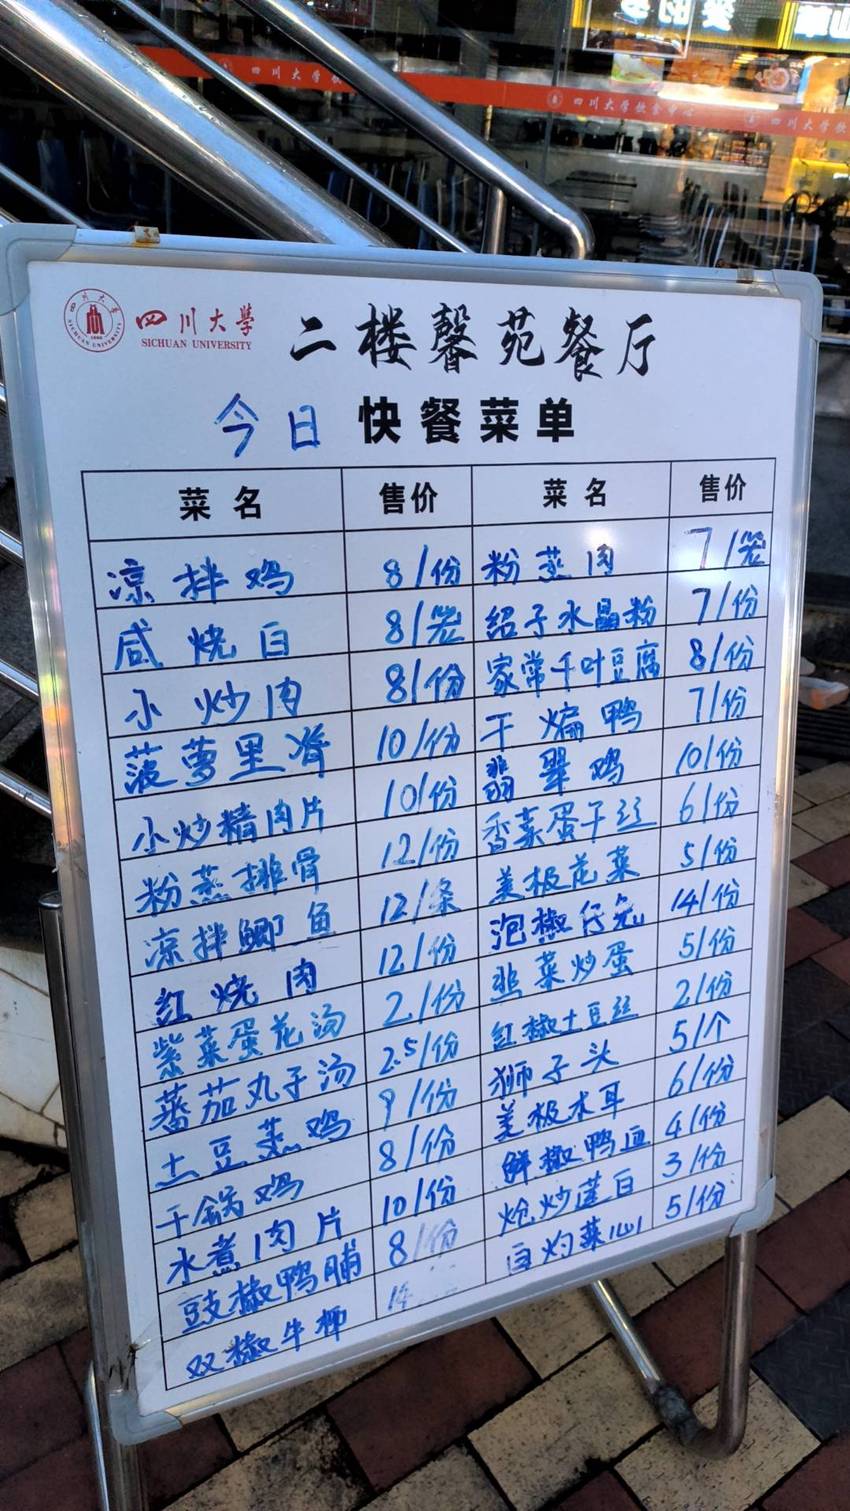 四川大学饮
四川大学饮食中心
四川大学饮
四川大學
SICHUAN UNIVERSITY
二楼馨苑餐厅
今日 快餐菜单
菜名 售价 菜名 售价
凉拌鸡 8/份 粉蒸肉 7/笼
咸烧白 8/笼 绍子水晶粉 7/份
小炒肉 8/份 家常千叶豆腐 8/份
菠萝里脊 10/份 干煸鸭 7/份
小炒精肉片 10/份 翡翠鸡 10/份
粉蒸排骨 12/份 香菜蛋干丝 6/份
凉拌鲫鱼 12/条 美极花菜 5/份
红烧肉 12/份 泡椒仔兔 14/份
紫菜蛋花汤 2/份 韭菜炒蛋 5/份
蕃茄丸子汤 2.5/份 红椒土豆丝 2/份
土豆蒸鸡 9/份 狮子头 5/个
干锅鸡 8/份 美极木耳 6/份
水煮肉片 10/份 鲜椒鸭血 4/份
豉椒鸭脯 8/份 炝炒莲白 3/份
双椒牛柳 14 白灼菜心 5/份